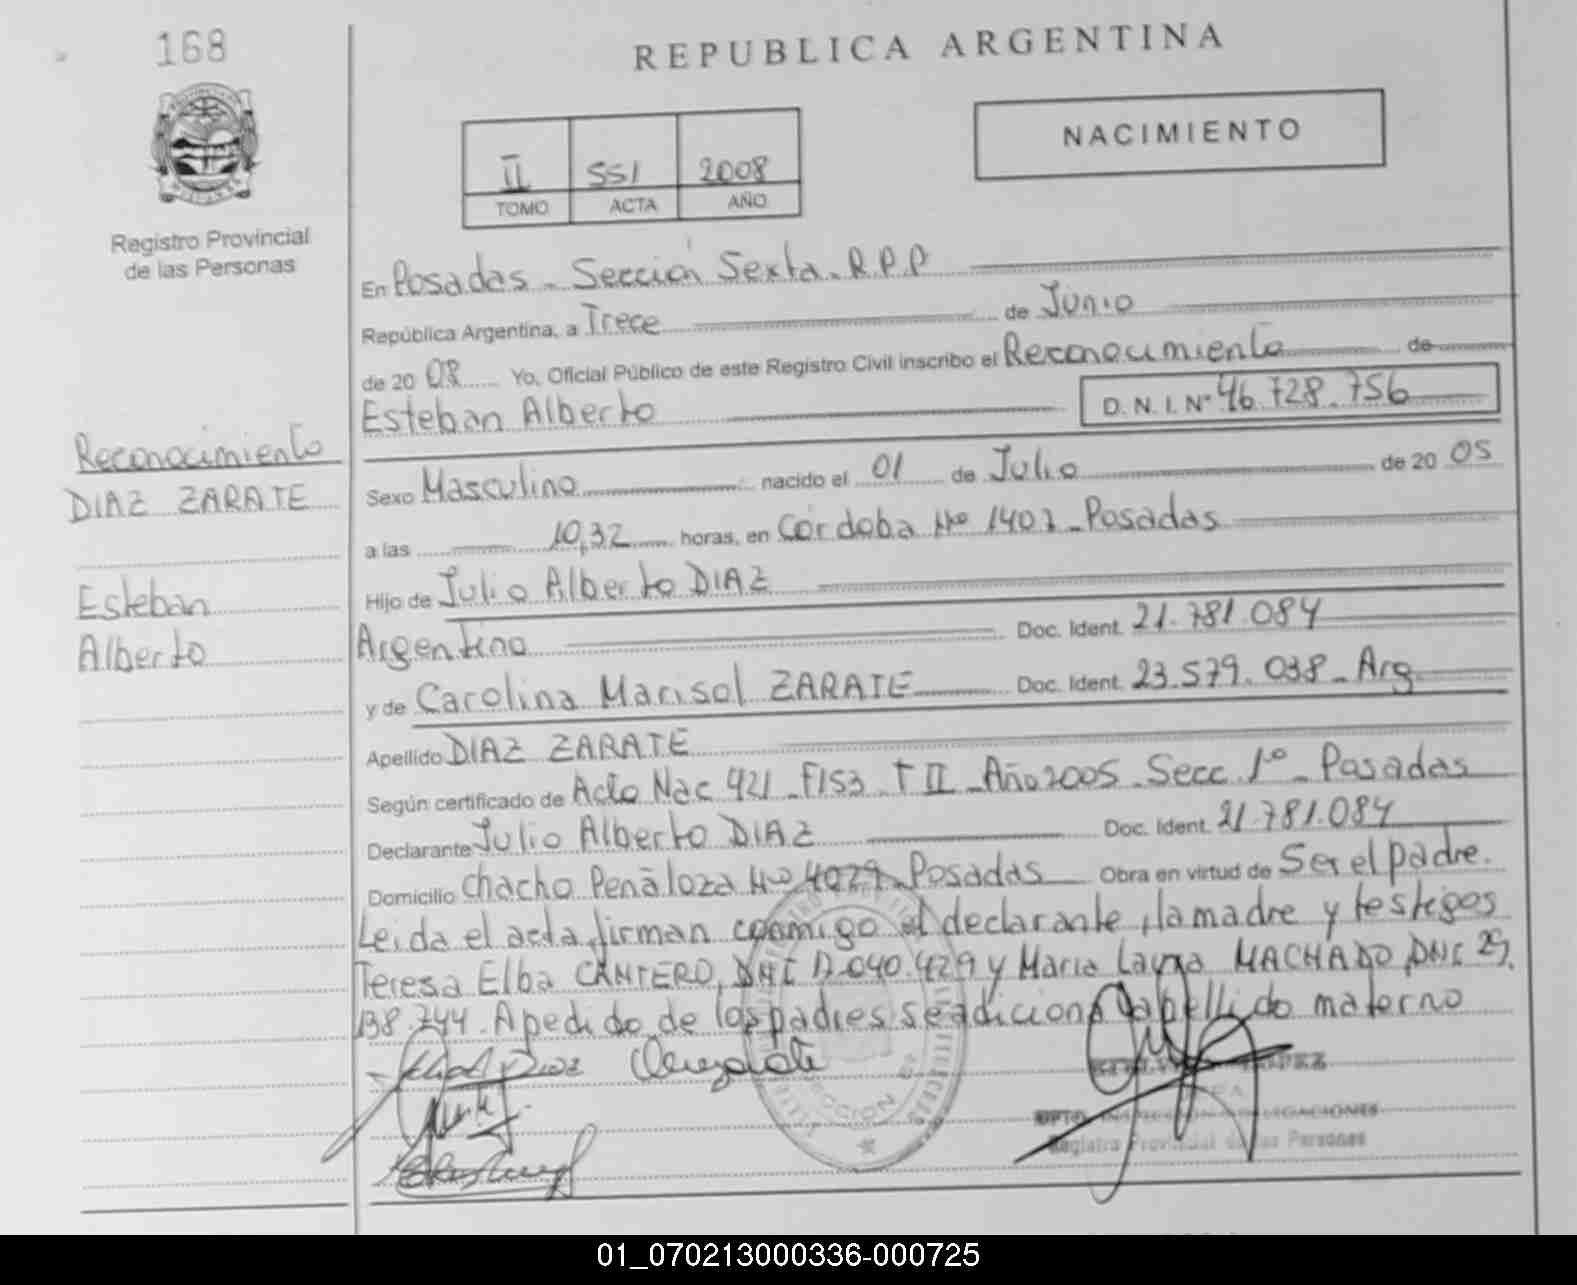 168
REPUBLICA ARGENTINA
NACIMIENTO
II 551 2008
TOMO ACTA AÑO
Registro Provincial
de las Personas
En Posadas - Sección Sexta - R.P.P
República Argentina, a Trece de Junio
de 20 08 Yo, Oficial Público de este Registro Civil inscribo el Reconocimiento de
Esteban Alberto D. N. I. Nº 46.728.756
Reconocimiento
DIAZ ZARATE
Esteban
Alberto
Sexo Masculino nacido el 01 de Julio de 20 05
a las 10,32 horas, en Córdoba Nº 1407 - Posadas
Hijo de Julio Alberto DIAZ
Argentino Doc. Ident. 21.781.084
y de Carolina Marisol ZARATE Doc. Ident. 23.579.038 - Arg
Apellido DIAZ ZARATE
Según certificado de Acta Nac 421 - F153 - T II - Año 2005 - Secc. 1º - Posadas
Declarante Julio Alberto DIAZ Doc. Ident. 21.781.084
Domicilio Chacho Peñaloza Nº 4029 - Posadas Obra en virtud de Ser el padre.
Leida el acta, firman conmigo el declarante, la madre y testigos
Teresa Elba CANTERO, DNI 17.040.429 y Maria Laura MACHADO, DNI 29.
138.744. A pedido de los padres se adiciona apellido materno
Diaz
SECCION 6
DPTO. INSPECCION DELEGACIONES
Registro Provincial de las Personas
01_070213000336-000725